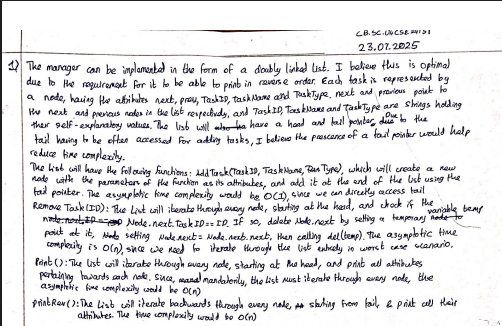 CB.SC.U4CSE24151
23.07.2025
1) The manager can be implemented in the form of a doubly linked list. I believe this is optimal
due to the requirement for it to be able to print in reverse order. Each task is represented by
a node, having the attributes next, prev, TaskID, TaskName and TaskType. next and previous point to
the next and previous nodes in the list respectively, and TaskID, TaskName and TaskType are strings holding
their self-explanatory values. The list will have a head and tail pointer, due to the
tail having to be often accessed for adding tasks, I believe the prescence of a tail pointer would help
reduce time complexity.
The list will have the following functions: AddTask(TaskID, TaskName, Type), which will create a new
node with the parameters of the function as its attributes, and add it at the end of the list using the
tail pointer. The asymptotic time complexity would be O(1), since we can directly access tail
Remove Task(ID): The list will iterate through every node, starting at the head, and check if the
Node.next.TaskID == ID. If so, delete Node.next by setting a temporary variable temp
point at it, setting Node.next = Node.next.next, then calling del(temp). The asymptotic time
complexity is O(n), since we need to iterate through the list entirely in worst case scenario.
Print(): The list will iterate through every node, starting at the head, and print all attributes
pertaining towards each node. Since, mandatorily, the list must iterate through every node, the
asymptotic time complexity would be O(n)
PrintRev(): The list will iterate backwards through every node, starting from tail, & print all their
attributes. The time complexity would be O(n)